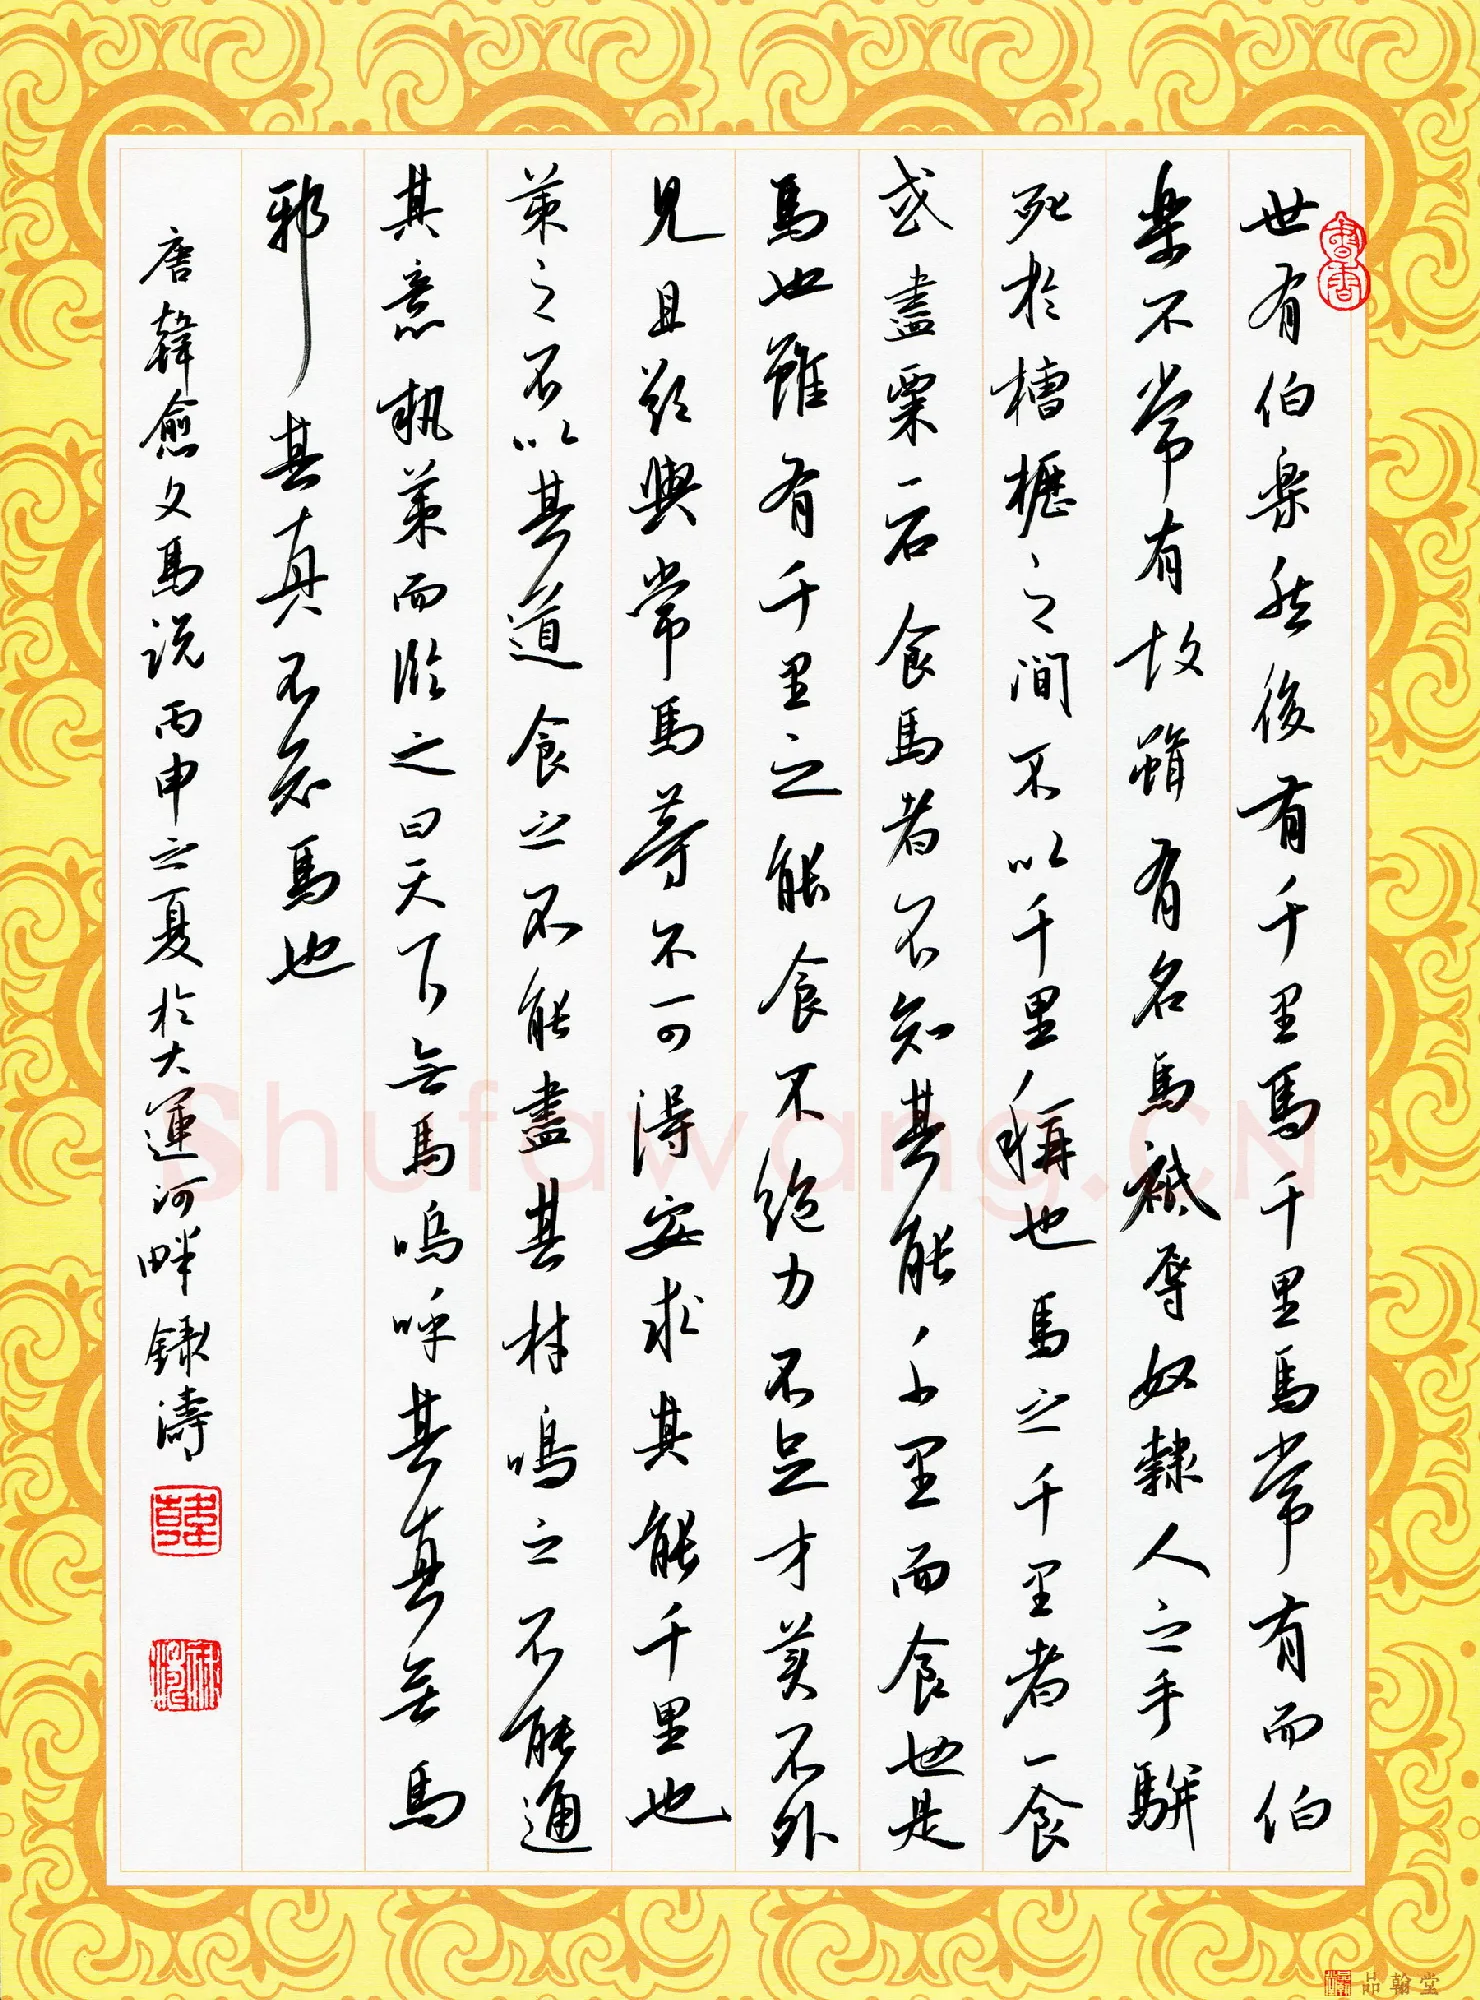 書香
世有伯樂然後有千里馬千里馬常有而伯
樂不常有故雖有名馬祗辱奴隸人之手駢
死於槽櫪之間不以千里稱也馬之千里者一食
或盡粟一石食馬者不知其能千里而食也是
馬也雖有千里之能食不飽力不足才美不外
見且欲與常馬等不可得安求其能千里也
策之不以其道食之不能盡其材鳴之不能通
其意執策而臨之曰天下無馬嗚呼其真無馬
邪其真不知馬也
唐韓愈文馬說丙申之夏於大運河畔濤
韓
Shufawang.CN
品翰堂